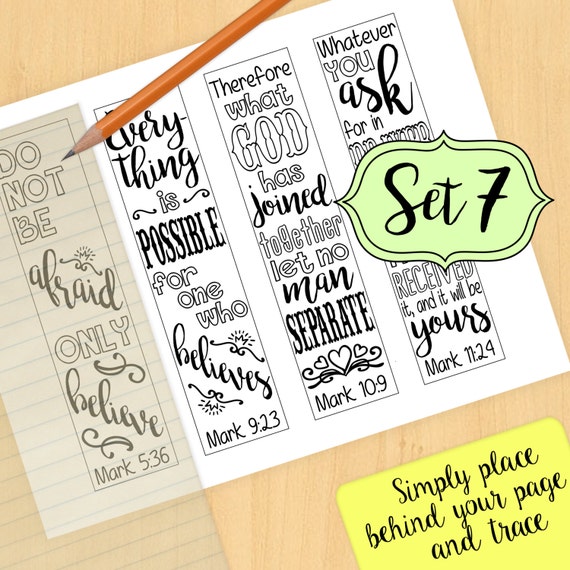 DO
NOT
BE
afraid
ONLY
believe
Mark 5:36
Every-
thing
is
POSSIBLE
for
one
who
believes
Mark 9:23
Therefore
what
GOD
has
joined
together
let no
man
SEPARATE
Mark 10:9
Whatever
YOU
ask
for in
RECEIVED
it, and it will be
yours
Mark 11:24
Set 7
Simply place
behind your page
and trace